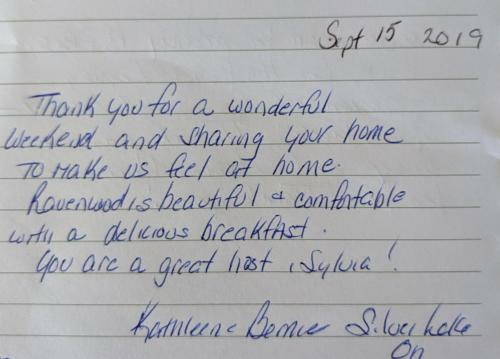 Sept 15 2019
Thank you for a wonderful
weekend and sharing your home
to make us feel at home.
Ravenwood is beautiful & comfortable
with a delicious breakfast.
You are a great host, Sylvia!
Kathleen & Bernie Silver Lake
On